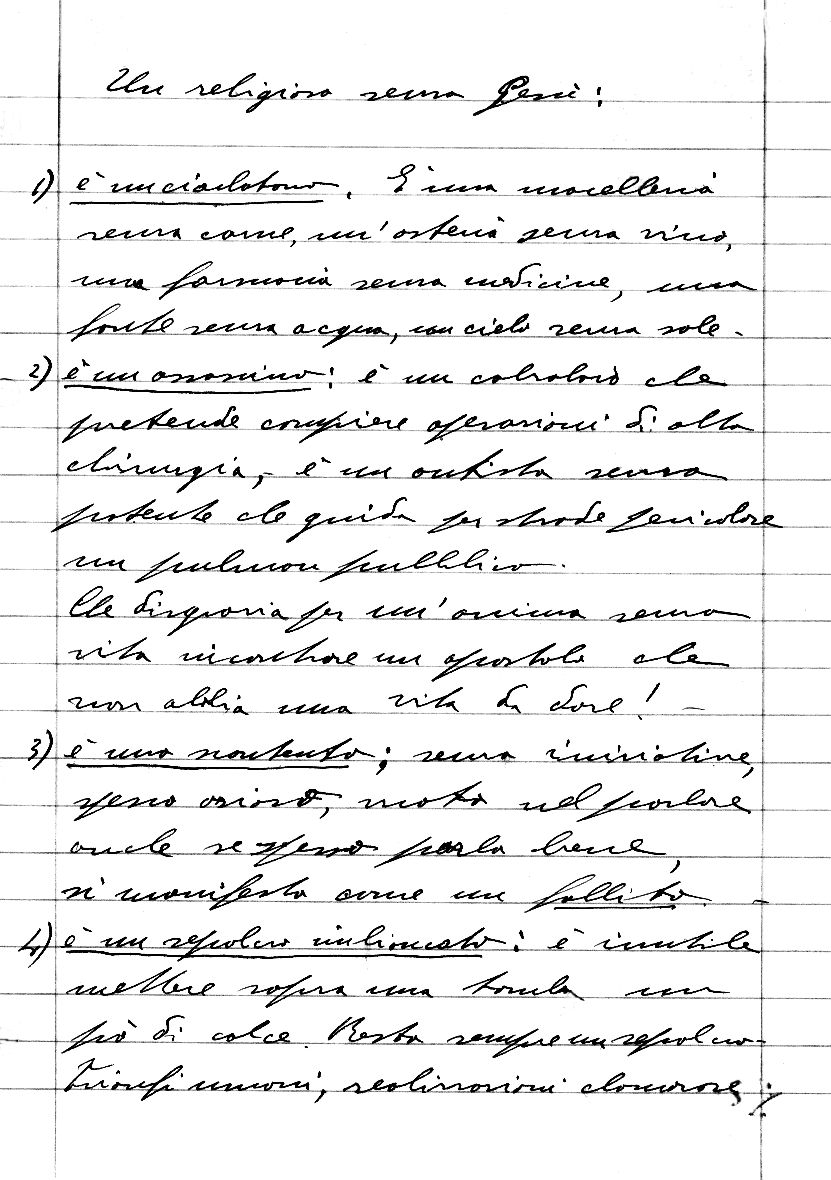 Un religioso senza Gesù:
1) è un ciarlatano. È una macelleria
senza carne, un'osteria senza vino,
una farmacia senza medicine, una
fonte senza acqua, un cielo senza sole -
2) è un assassino: è un calzolaio che
pretende compiere operazioni di alta
chirurgia, - è un autista senza
patente che guida per strade pericolose
un pulman pubblico.
Che disgrazia per un'anima senza
vita incontrare un apostolo che
non abbia una vita da dare! -
3) è uno scontento; senza iniziative,
spesso ozioso, vuoto nel parlare
anche se spesso parla bene,
si manifesta come un fallito. -
4) è un sepolcro imbiancato: è inutile
mettere sopra una tomba un
pò di calce. Resta sempre un sepolcro -
Trionfi umani, realizzazioni clamorose,